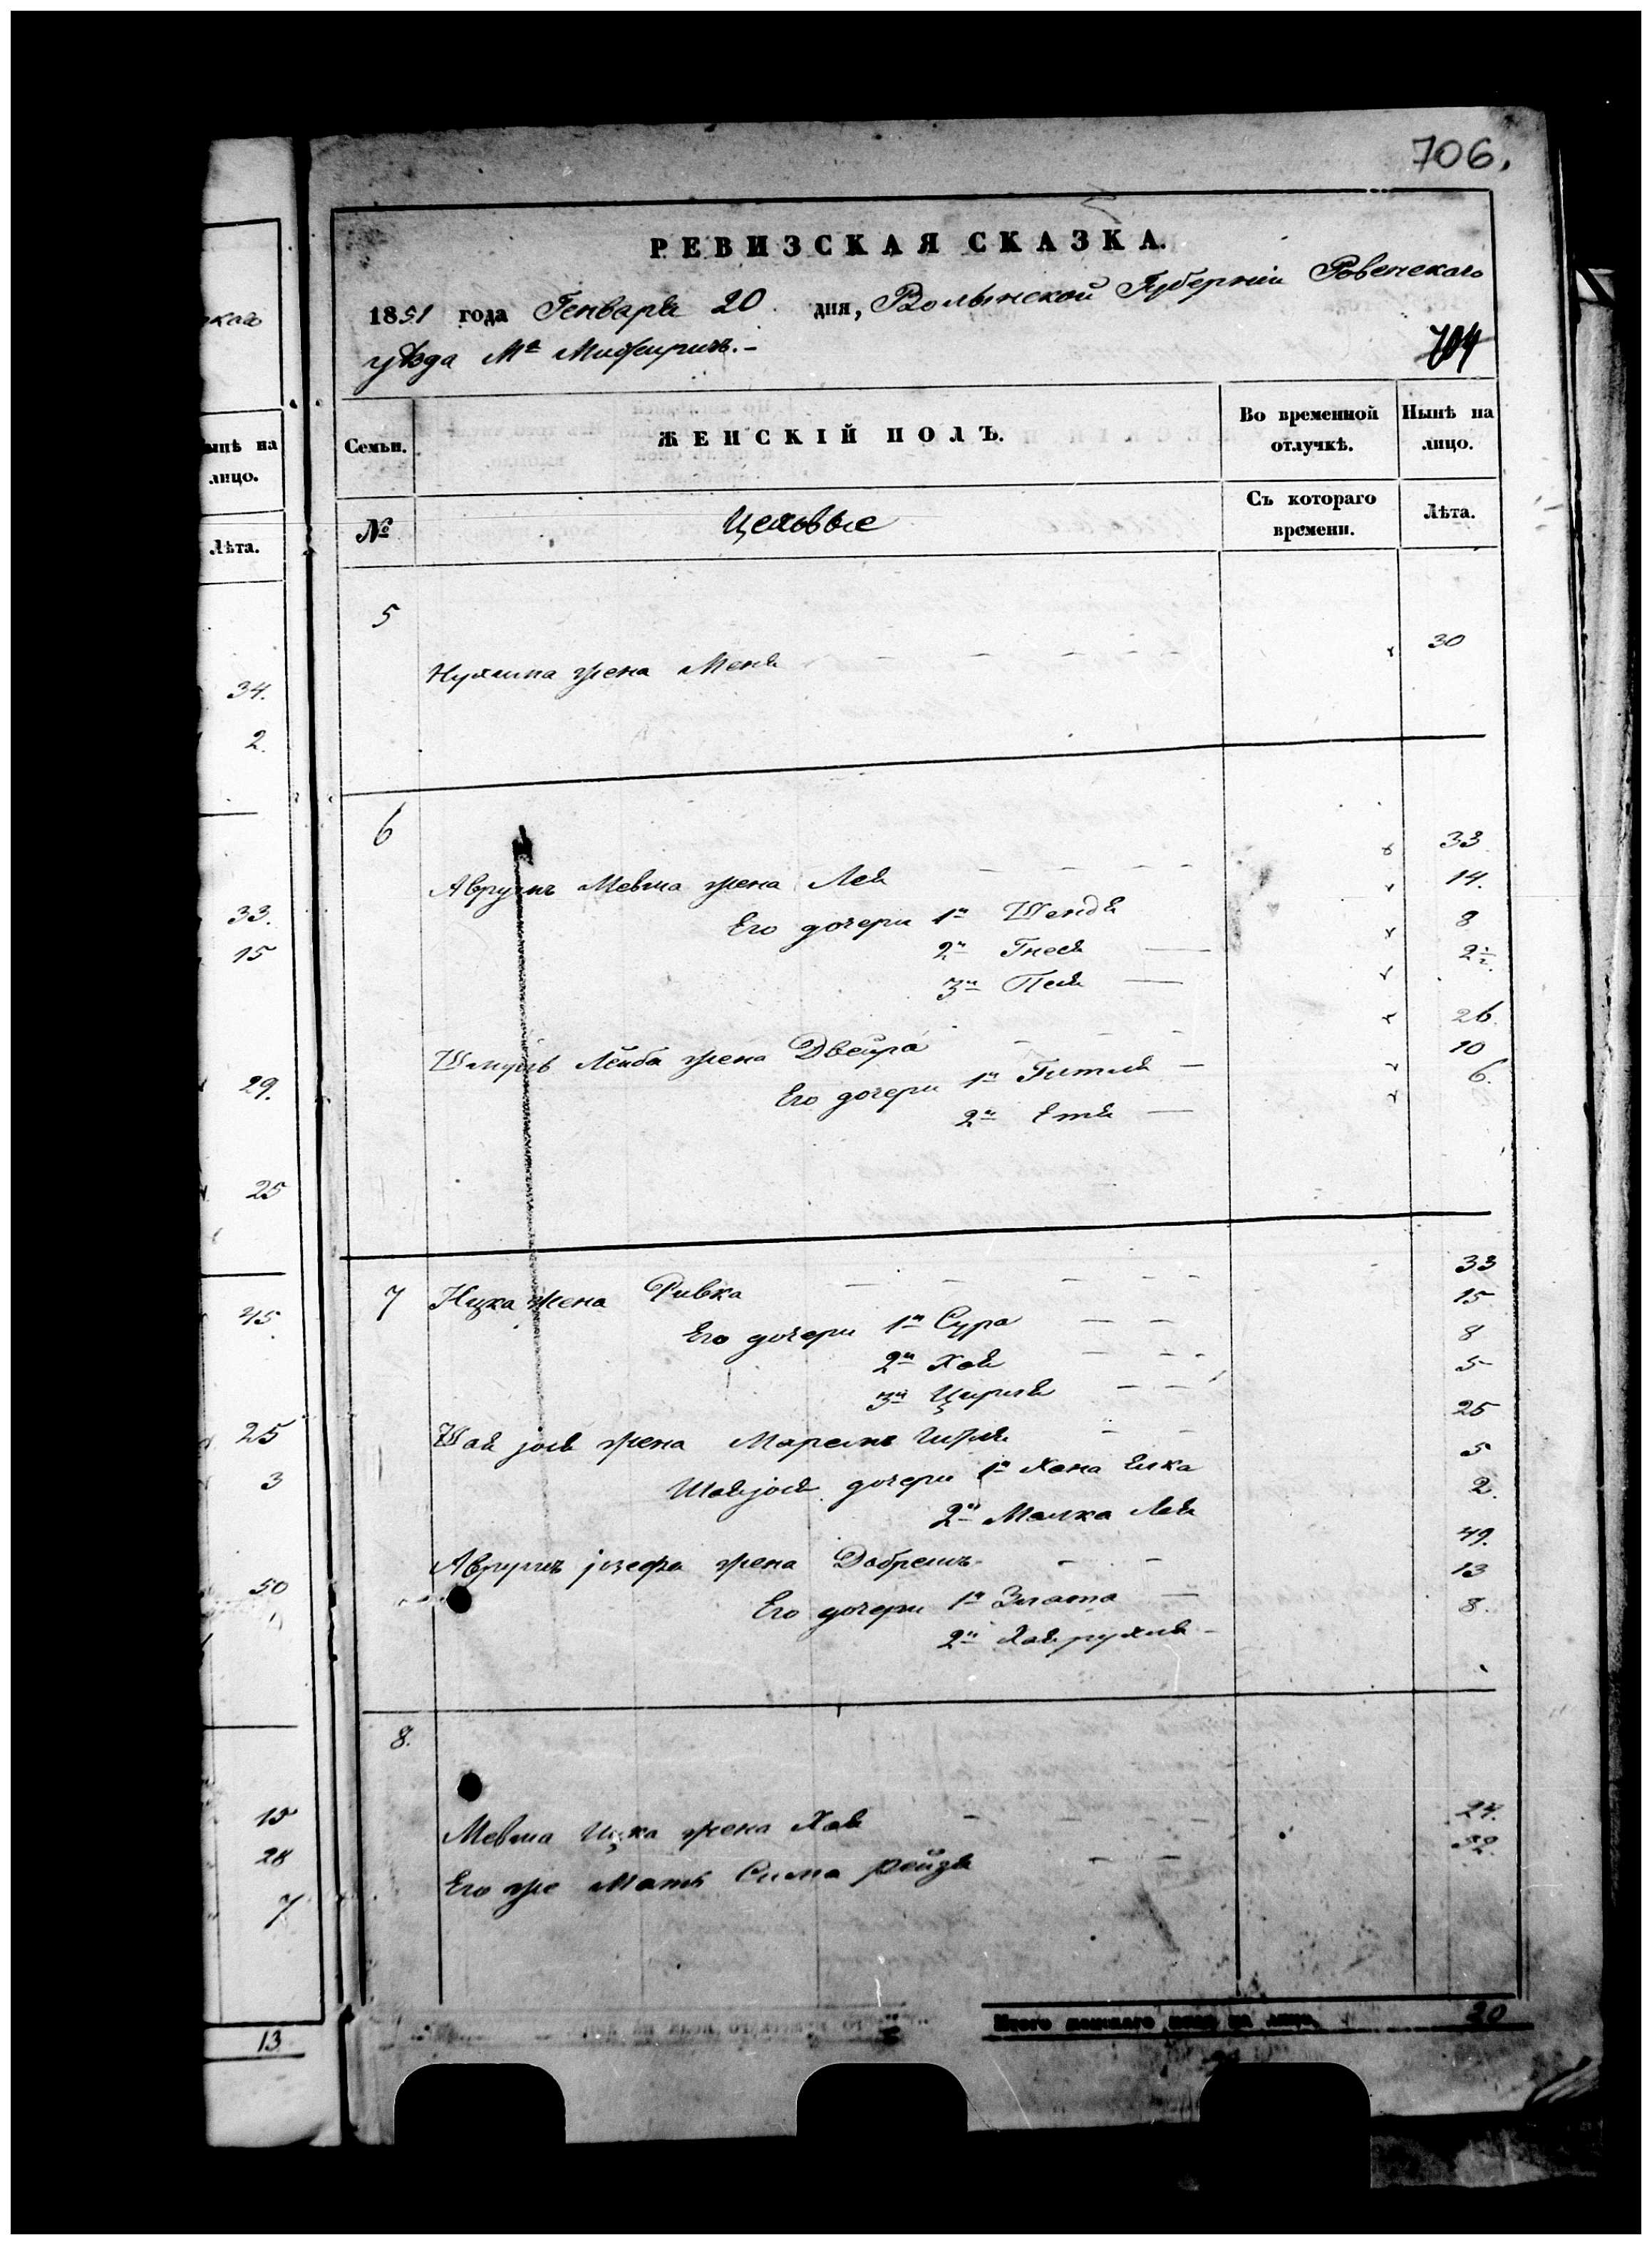 706.
РЕВИЗСКАЯ СКАЗКА.
1851 года Генваря 20 дня, Волынской Губернiи Ровенскаго
уѣзда Мѣ
704
Семьи.
ЖЕНСКIЙ ПОЛЪ.
Во временной отлучкѣ.
Нынѣ на лицо.
№
Цеховые
Съ котораго времени.
Лѣта.
5
Нухима жена Меня 30
6
Аврумъ Мевша жена Лея 33
Его дочери 1я Шендя 14.
2я Гнеся 8
3я Песя 2½.
Шмуль Лейба жена Двейра 26.
Его дочери 1я Гитля 10
2я Етя 6.
7 Ицка жена Ривка 33
Его дочери 1я Сура 15
2я Хая 8
3я Цирля 5
Шая жена 25
дочери 1я Хана Елка 5
2я Малка Лея 2.
Аврумъ іозефа жена Добрешъ 49.
Его дочери 1я Злата 13
2я Хая рухля 8.
8.
Мевша Ицка жена Хая 24.
Его же Мать Сима рейзя 52.
Итого женскаго пола на лицо 20
скаго
Нынѣ на
лицо.
Лѣта.
34.
2.
33.
15
29.
25
45
25
3
50
15
28
7
13